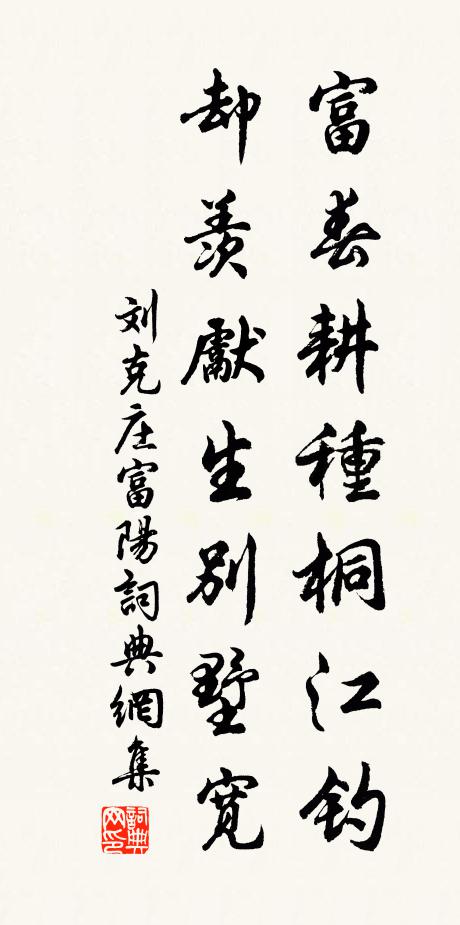 富春耕種桐江釣
却羨獻生別墅寬
刘克庄富陽詞典網集
詞典网印